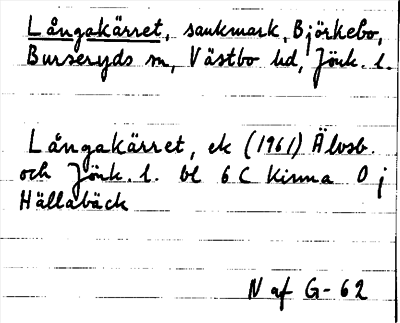 Långakärret, sankmark, Björkebo,
Burseryds sn, Västbo hd, Jönk. l.
Långakärret, ek (1961) Älvsb.
och Jönk. l. bl 6 C Kinna 0 j
Hällabäck
N af G-62